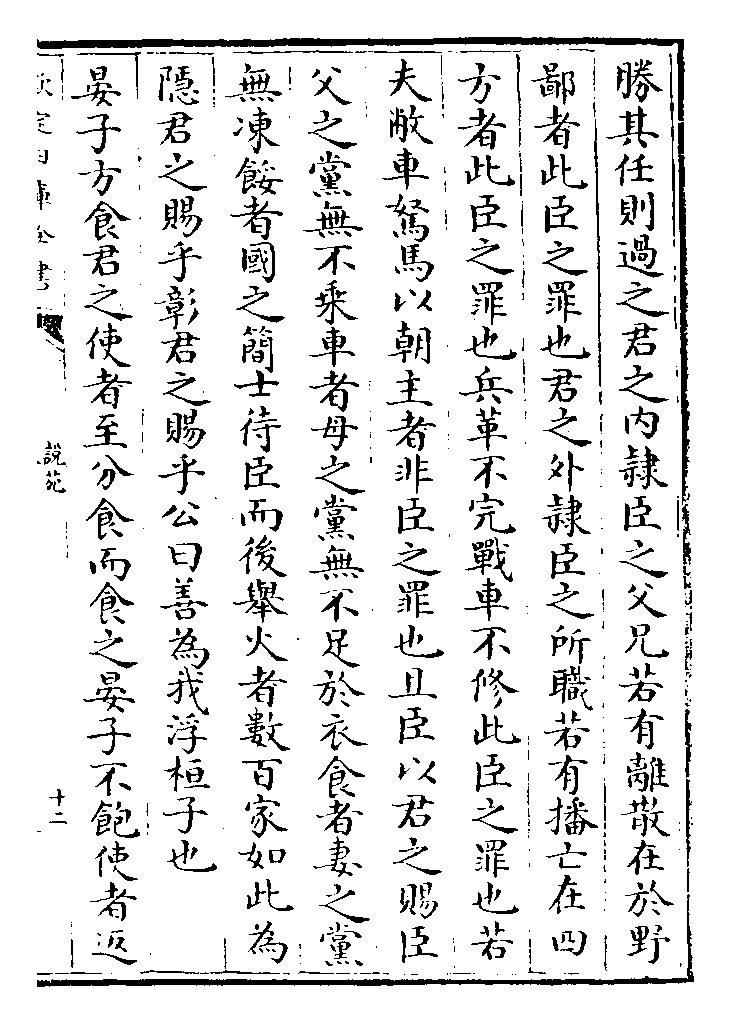 勝其任則過之君之内隷臣之父兄若有離散在於野
鄙者此臣之罪也君之外隷臣之所職若有播亡在四
方者此臣之罪也兵革不完戰車不修此臣之罪也若
夫敝車駑馬以朝主者非臣之罪也且臣以君之賜臣
父之黨無不乘車者母之黨無不足於衣食者妻之黨
無凍餒者國之簡士待臣而後舉火者數百家如此為
隱君之賜乎彰君之賜乎公曰善為我浮桓子也
晏子方食君之使者至分食而食之晏子不飽使者返
欽定四庫全書
說苑
十二